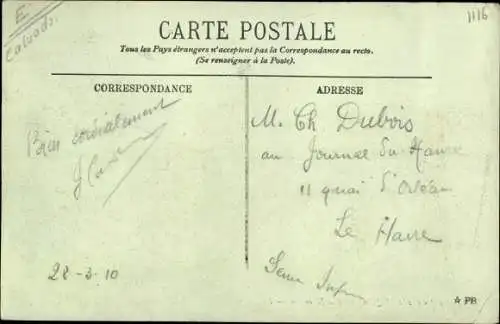 E
Calvados.
1116
CARTE POSTALE
Tous les Pays étrangers n'acceptent pas la Correspondance au recto.
(Se renseigner à la Poste).
CORRESPONDANCE
ADRESSE
Bien cordialement
28-3-10
M. Ch Dubois
au Journal du Havre
11 quai d'Orléans
Le Havre
Seine Infre
☆ PB